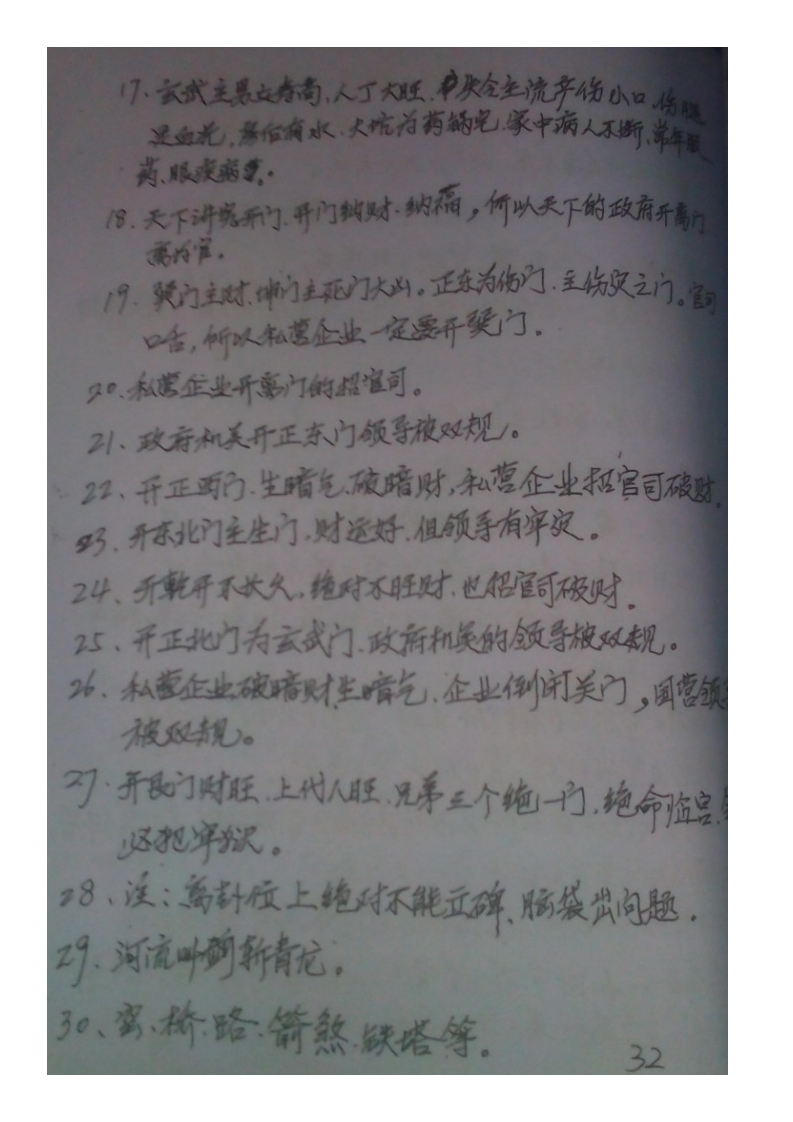 17、玄武主男女寿高,人丁大旺、失令主流产伤小口、伤腿
血光,有水、大坑为药锅宅、家中病人不断、常年服
药、眼疾病多。
18、天下讲究开门、开门纳财、纳福,所以天下的政府开离门
离为官。
19、巽门主财、坤门主死门大凶。正东为伤门、主伤灾之门。官司
口舌,所以私营企业一定要开巽门。
20、私营企业开离门的招官司。
21、政府机关开正东门领导被双规。
22、开正西门、生暗气、破暗财,私营企业招官司破财。
23、开东北门主生门、财运好、但领导有牢灾。
24、开乾开不长久、绝对不旺财、也招官司破财。
25、开正北门为玄武门、政府机关的领导被双规。
26、私营企业破暗财生暗气、企业倒闭关门,国营领导
被双规。
27、开艮门财旺、上代人旺、兄弟三个绝一门、绝命临宫、
必把牢狱。
28、注:离卦位上绝对不能立碑、脑袋出问题。
29、河流叫斩青龙。
30、窑、桥、路、箭煞、铁塔等。
32